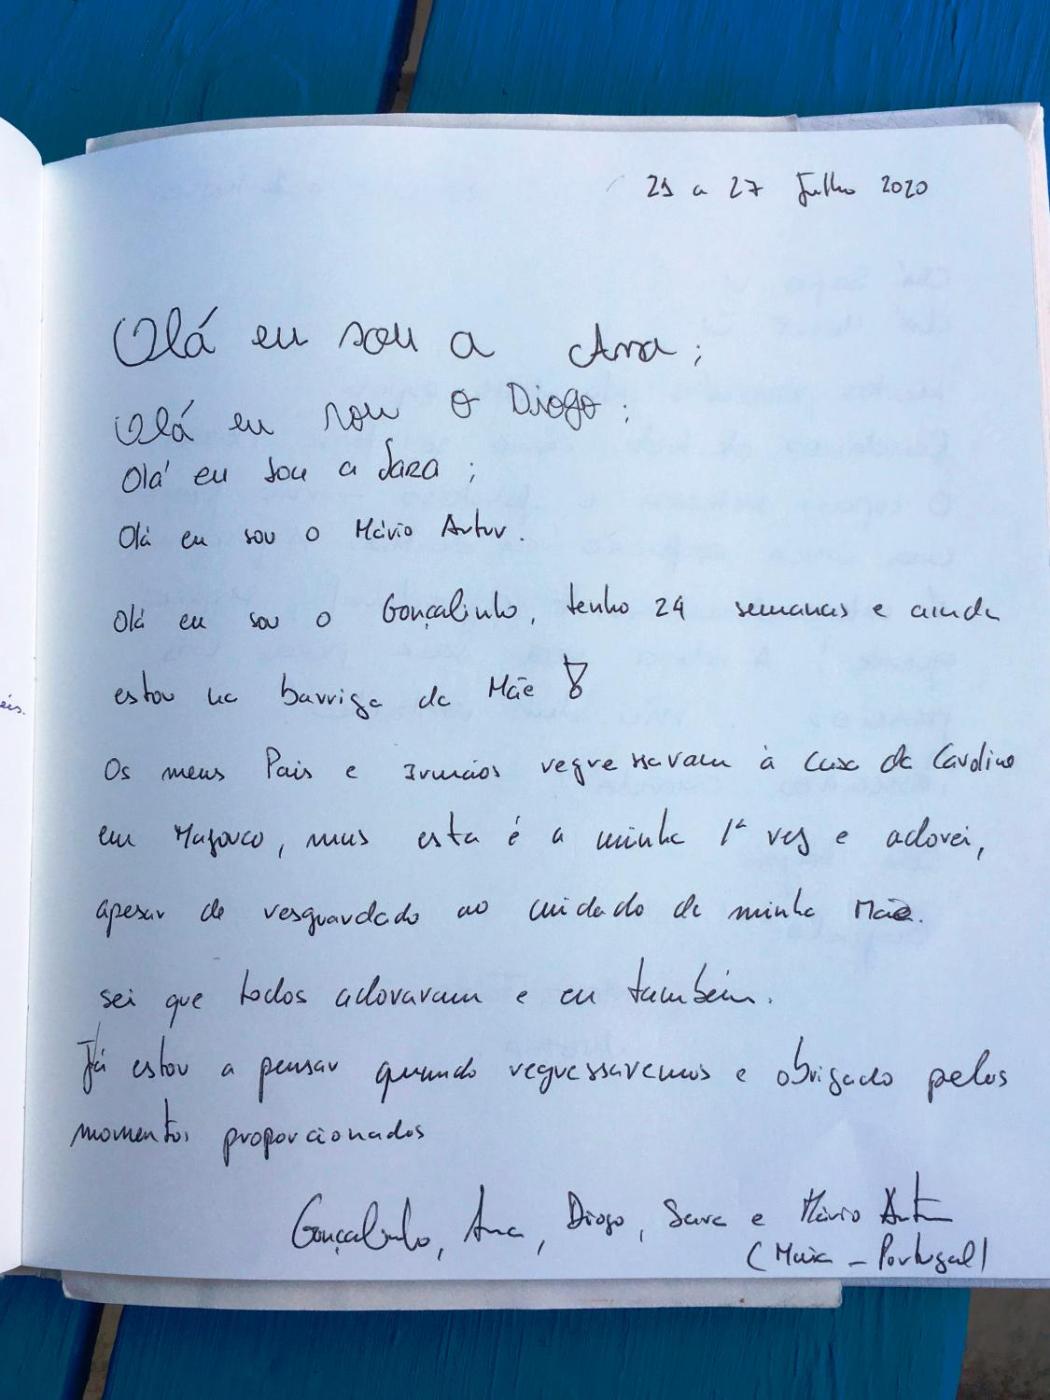 21 a 27 Julho 2020
Olá eu sou a Ana;
Olá eu sou o Diogo;
Olá eu sou a Sara;
Olá eu sou o Mário Artur.
Olá eu sou o Gonçalinho, tenho 24 semanas e ainda
estou na barriga da Mãe
Os meus Pais e Irmãos regressaram à Casa da Carolina
em Mazouco, mas esta é a minha 1ª vez e adorei,
apesar de resguardado ao cuidado da minha Mãe.
sei que todos adoraram e eu também.
Já estou a pensar quando regressaremos e obrigado pelos
momentos proporcionados
Gonçalinho, Ana, Diogo, Sara e Mário Artur
(Maia - Portugal)
éis.